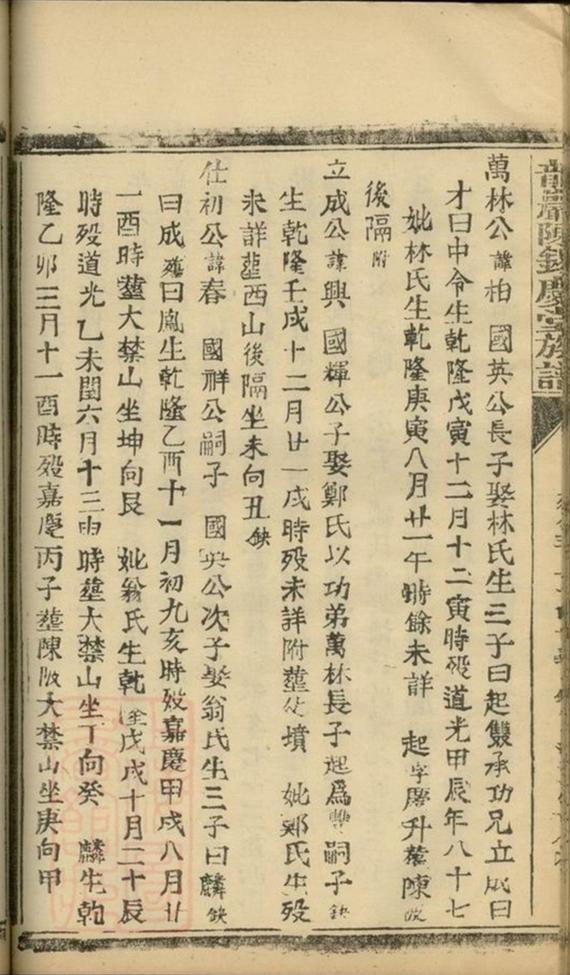 萬林公諱柏 國英公長子娶林氏生三子曰起雙承功兄立成曰
才曰中令生乾隆戊寅十二月十二寅時歿道光甲辰年八十七
妣林氏生乾隆庚寅八月廿一午時餘未詳 起字慶升葬陳坂
後隔附
立成公諱興 國輝公子娶鄭氏以功弟萬林長子起為雙嗣子缺
生乾隆壬戌十二月廿一戌時歿未詳附塟父墳 妣鄭氏生歿
未詳塟西山後隔坐未向丑缺
仕初公諱春 國祥公嗣子 國英公次子娶翁氏生三子曰麟缺
曰成 曰胤生乾隆乙酉十一月初九亥時歿嘉慶甲戌八月廿
一酉時塟大禁山坐坤向艮 妣翁氏生乾隆戊戌十月二十辰
時歿道光乙未閏六月十三 時塟大禁山坐丁向癸 麟生乾
隆乙卯三月十一酉時歿嘉慶丙子塟陳坂大禁山坐庚向甲
族譜